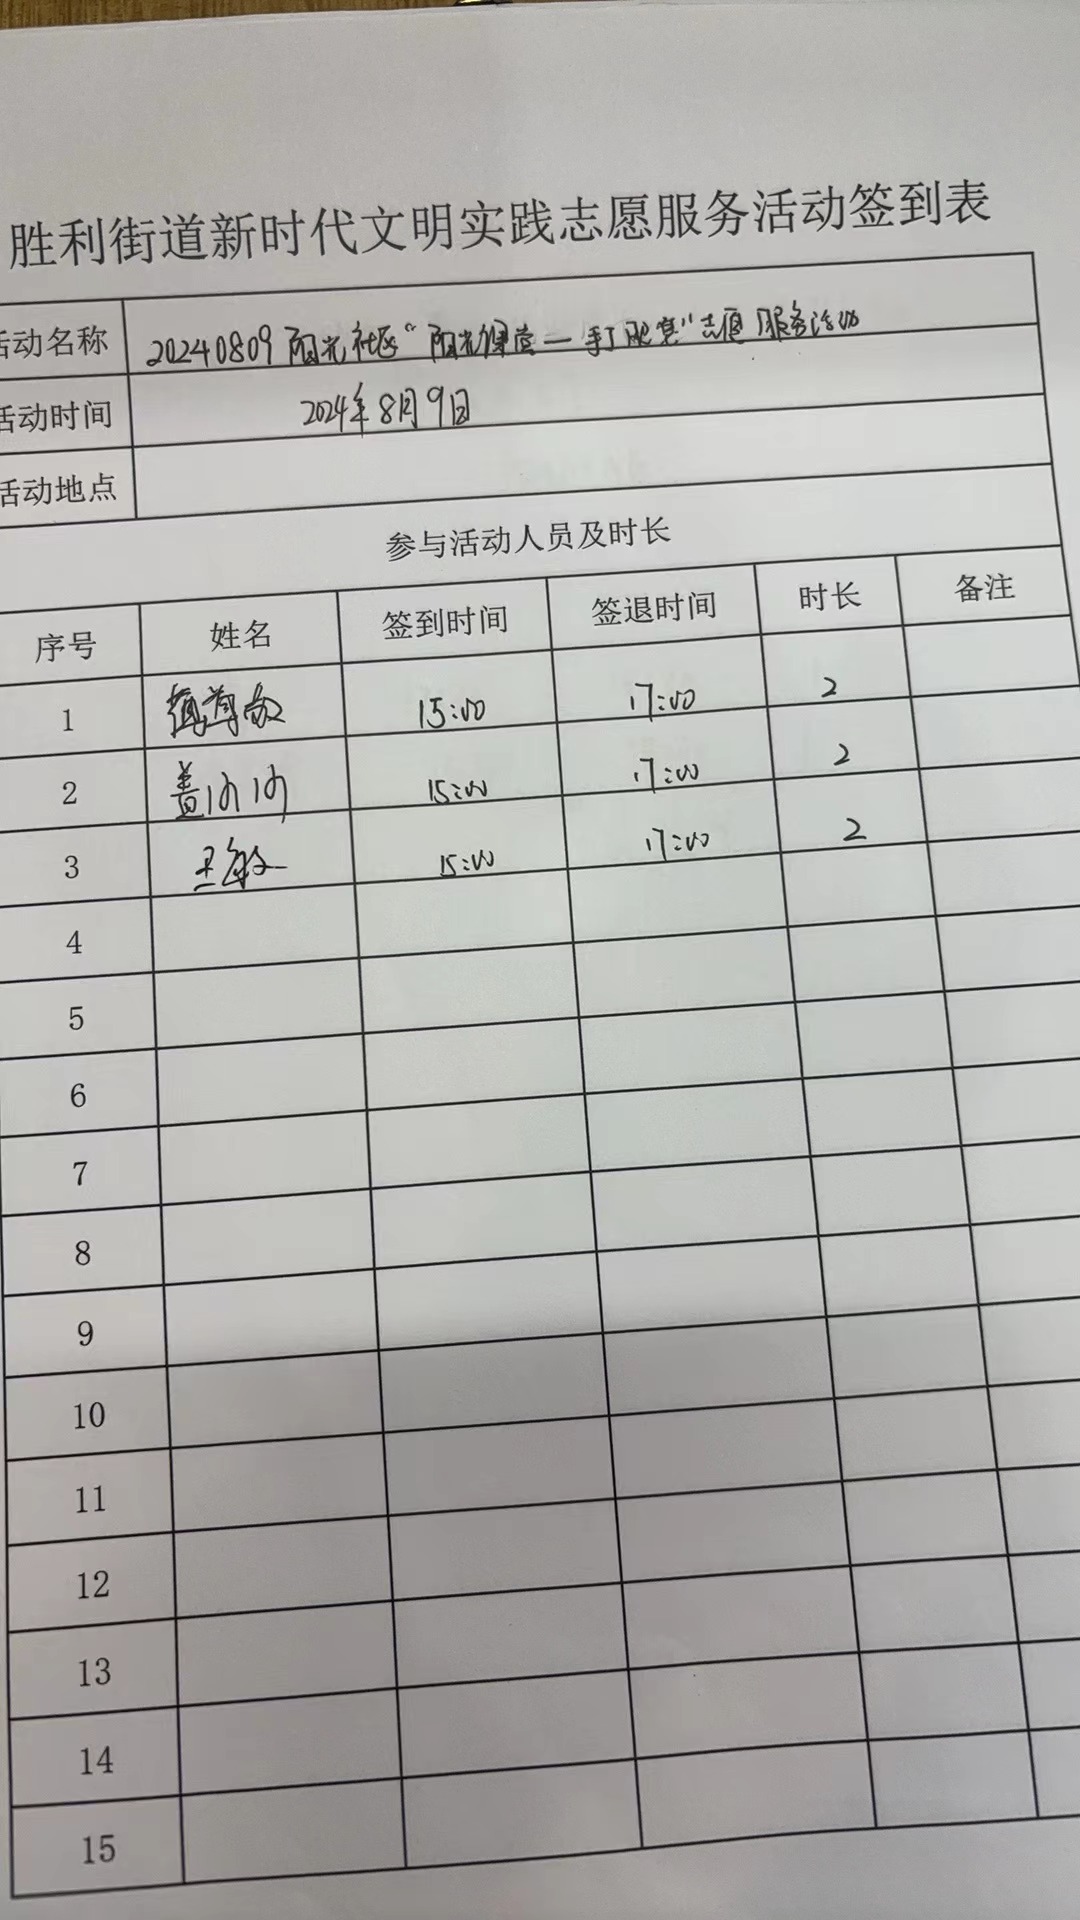 胜利街道新时代文明实践志愿服务活动签到表
活动名称 20240809阳光社区“阳光课堂—手工”志愿服务活动
活动时间 2024年8月9日
活动地点
参与活动人员及时长
序号 姓名 签到时间 签退时间 时长 备注
1 15:00 17:00 2
2 15:00 17:00 2
3 王敏 15:00 17:00 2
4
5
6
7
8
9
10
11
12
13
14
15